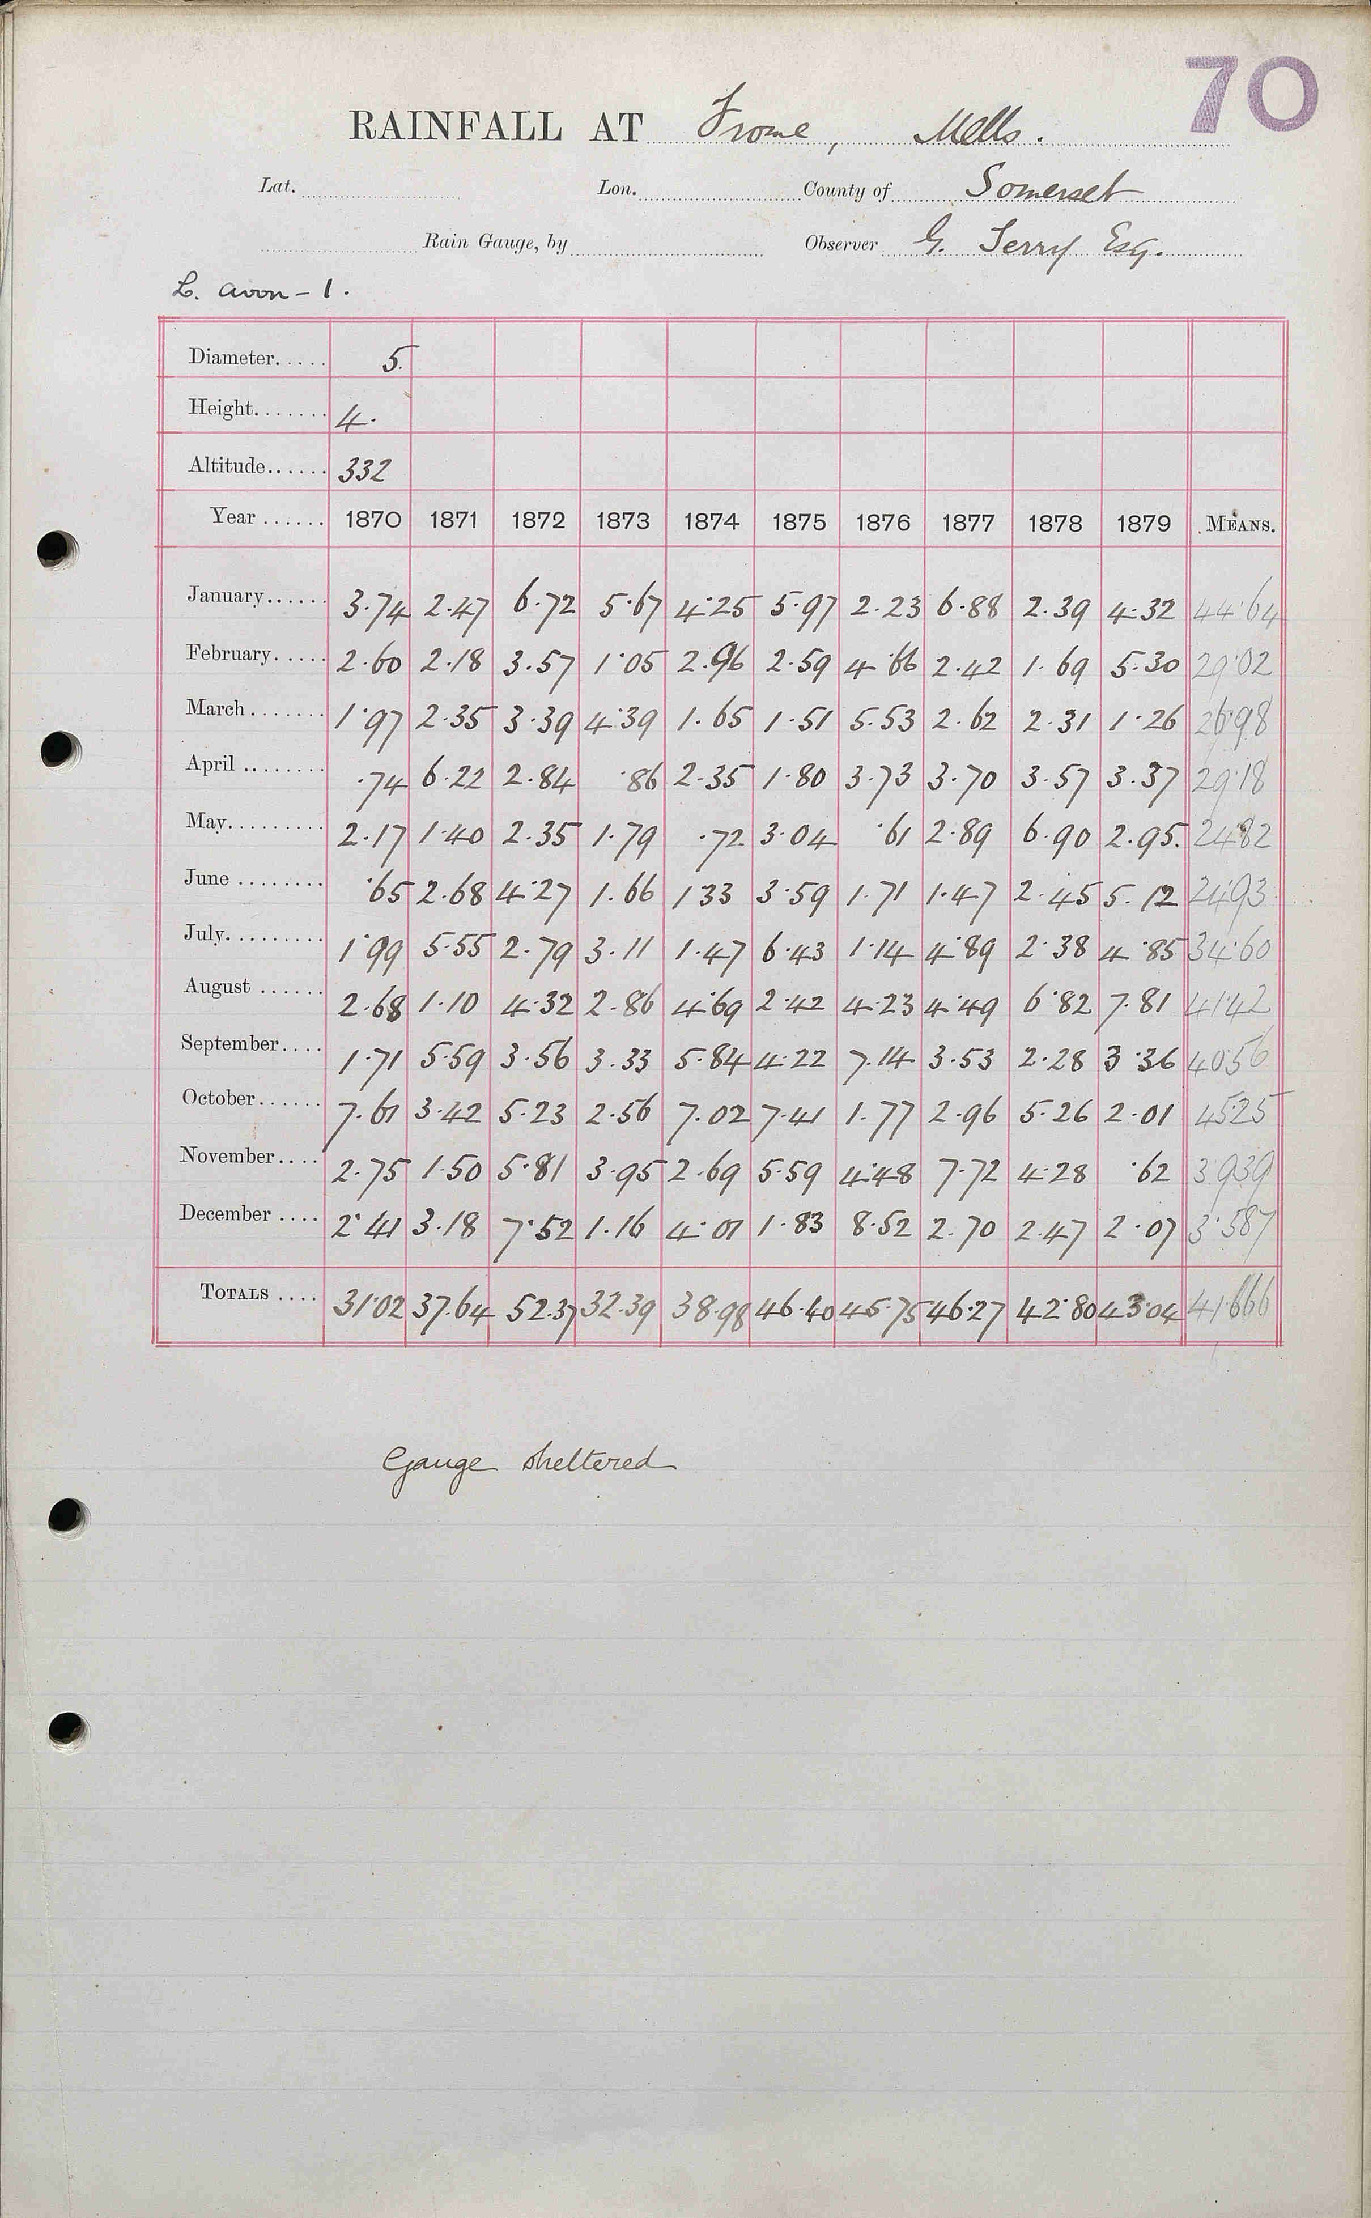 70
RAINFALL AT Frome, Mells.
Lat. Lon. County of Somerset
Rain Gauge, by Observer G. Terry Esq.
L. Avon - 1.
Diameter 5.
Height 4.
Altitude 332
Year 1870 1871 1872 1873 1874 1875 1876 1877 1878 1879 MEANS.
January 3.74 2.47 6.72 5.67 4.25 5.97 2.23 6.88 2.39 4.32 44.64
February 2.60 2.18 3.57 1.05 2.96 2.59 4.66 2.42 1.69 5.30 29.02
March 1.97 2.35 3.39 4.39 1.65 1.51 5.53 2.62 2.31 1.26 26.98
April .74 6.22 2.84 .86 2.35 1.80 3.73 3.70 3.57 3.37 29.18
May 2.17 1.40 2.35 1.79 .72 3.04 .61 2.89 6.90 2.95. 24.82
June .65 2.68 4.27 1.66 133 3.59 1.71 1.47 2.45 5.12 24.93
July 1.99 5.55 2.79 3.11 1.47 6.43 1.14 4.89 2.38 4.85 34.60
August 2.68 1.10 4.32 2.86 4.69 2.42 4.23 4.49 6.82 7.81 41.42
September 1.71 5.59 3.56 3.33 5.84 4.22 7.14 3.53 2.28 3.36 40.56
October 7.61 3.42 5.23 2.56 7.02 7.41 1.77 2.96 5.26 2.01 45.25
November 2.75 1.50 5.81 3.95 2.69 5.59 4.48 7.72 4.28 .62 3.939
December 2.41 3.18 7.52 1.16 4.01 1.83 8.52 2.70 2.47 2.07 3.587
TOTALS 31.02 37.64 52.37 32.39 38.98 46.40 45.75 46.27 42.80 43.04 41.666
Gauge sheltered